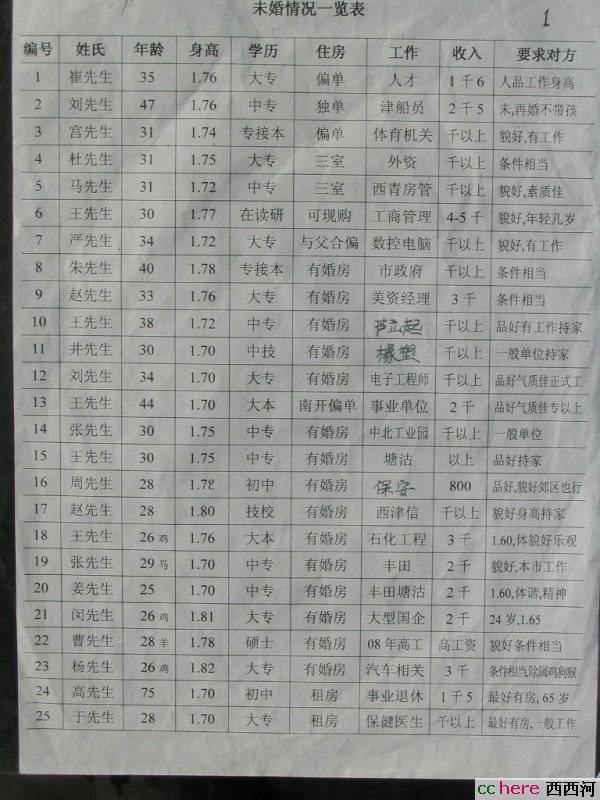 未婚情况一览表
1
编号 姓氏 年龄 身高 学历 住房 工作 收入 要求对方
1 崔先生 35 1.76 大专 偏单 人才 1千6 人品工作身高
2 刘先生 47 1.76 中专 独单 津船员 2千5 未,再婚不带孩
3 宫先生 31 1.74 专接本 偏单 体育机关 千以上 貌好,有工作
4 杜先生 31 1.75 大专 三室 外资 千以上 条件相当
5 马先生 31 1.72 中专 三室 西青房管 千以上 貌好,素质佳
6 王先生 30 1.77 在读研 可现购 工商管理 4-5千 貌好,年轻几岁
7 严先生 34 1.72 大专 与父合偏 数控电脑 千以上 貌好,有工作
8 朱先生 40 1.78 专接本 有婚房 市政府 千以上 条件相当
9 赵先生 33 1.76 大专 有婚房 美资经理 3千 条件相当
10 王先生 38 1.72 中专 有婚房 千以上 品好有工作持家
11 井先生 30 1.70 中技 有婚房 橡塑 千以上 一般单位持家
12 刘先生 34 1.70 大专 有婚房 电子工程师 千以上 品好气质佳正式工
13 王先生 44 1.70 大本 南开偏单 事业单位 2千 品好气质佳专以上
14 张先生 30 1.75 中专 有婚房 中北工业园 千以上 一般单位
15 王先生 30 1.75 中专 有婚房 塘沽 以上 品好持家
16 周先生 28 1.78 初中 有婚房 保安 800 品好,貌好郊区也行
17 赵先生 28 1.80 技校 有婚房 西津信 千以上 貌好身高持家
18 王先生 26鸡 1.76 大本 有婚房 石化工程 3千 1.60,体貌好乐观
19 张先生 29马 1.70 中专 有婚房 丰田 2千 貌好,本市工作
20 姜先生 25 1.70 中专 有婚房 丰田塘沽 2千 1.60,体谐,精神
21 闵先生 26鸡 1.81 大专 有婚房 大型国企 2千 24岁,1.65
22 曹先生 28羊 1.78 硕士 有婚房 08年高工 高工资 貌好条件相当
23 杨先生 26鸡 1.82 大专 有婚房 汽车相关 3千 条件相当,除属鸡狗猴
24 高先生 75 1.70 初中 租房 事业退休 1千5 最好有房,65岁
25 于先生 28 1.70 大专 租房 保健医生 千以上 最好有房,一般工作
cchere 西西河